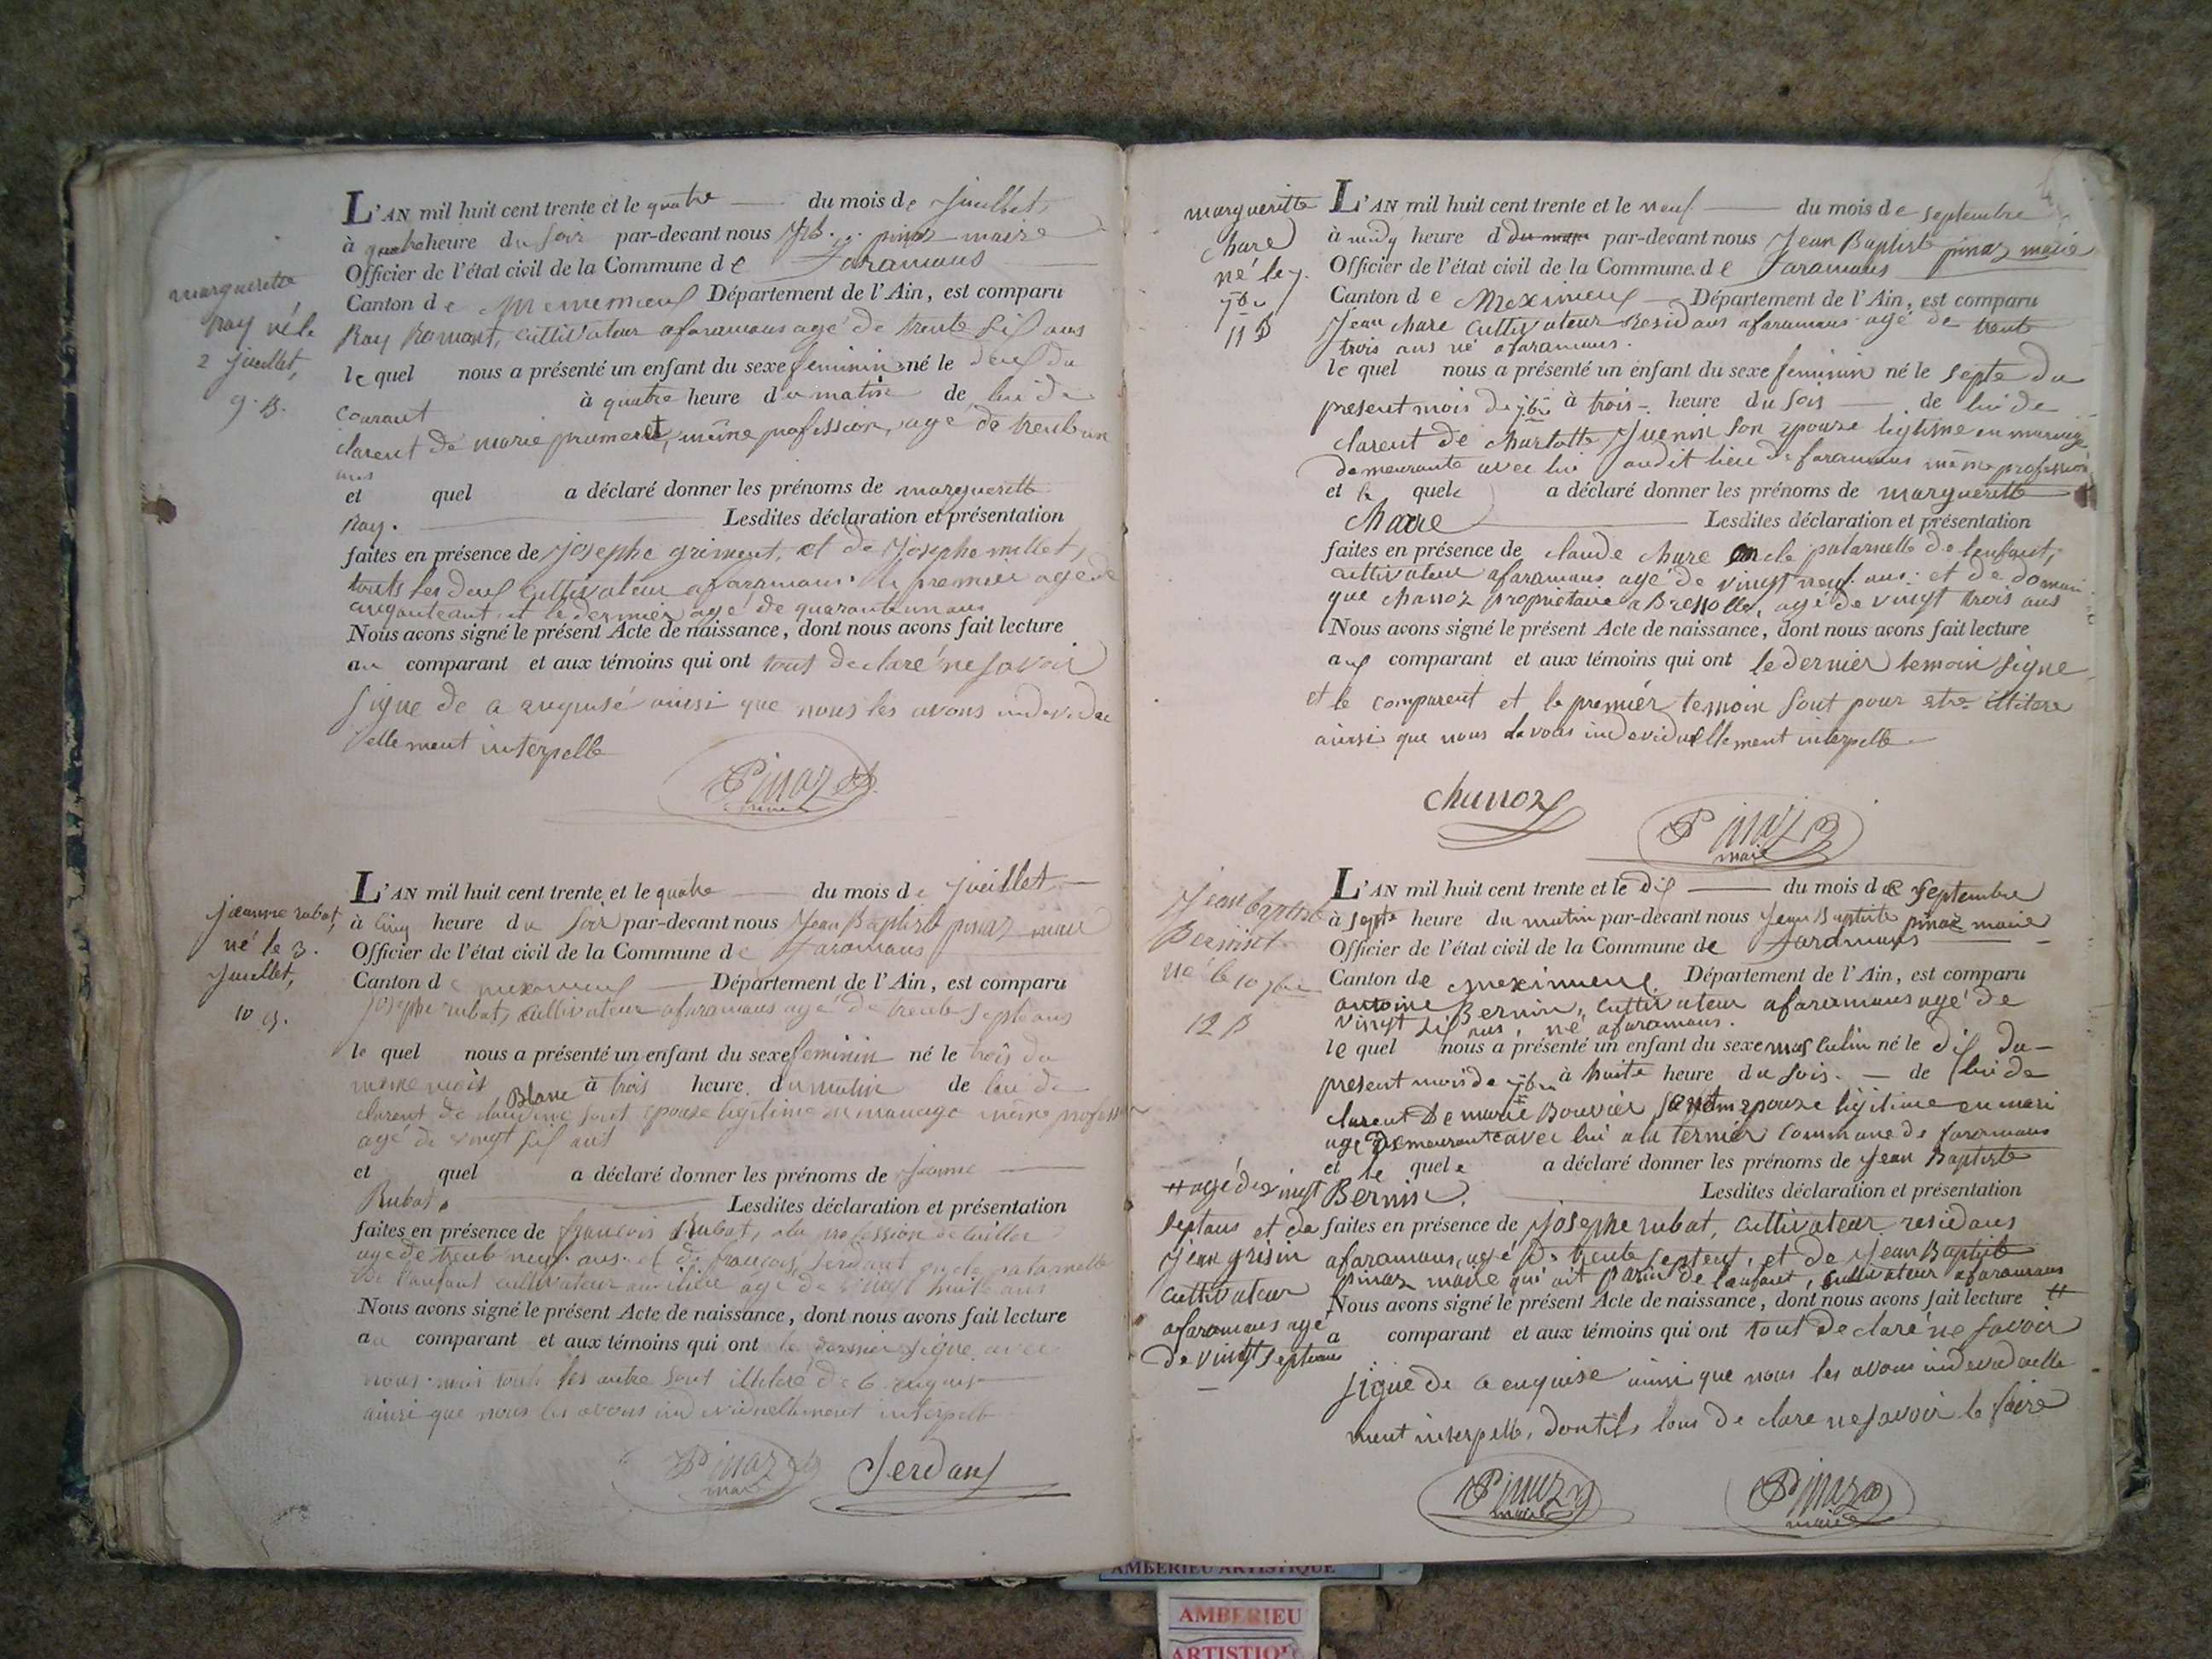 marguerette
Ray né le
2 juillet,
9. B.
L'AN mil huit cent trente et le quatre du mois de Juillet,
à quatre heure du soir par-devant nous pinaz maire
Officier de l'état civil de la Commune de faramans
Canton de Département de l'Ain, est comparu
Ray Romant, cultivateur afaramans agé de trente six ans
le quel nous a présenté un enfant du sexe feminin né le deux du
courant à quatre heure du matin de lui de
clarent de marie même profession, agé de trente un
ans
et quel a déclaré donner les prénoms de marguerette
Ray. Lesdites déclaration et présentation
faites en présence de Josephe griment, et de Josephe millet,
touts les deux cultivateur afaramans. le premier age de
et le dernier agé de quarante un ans
Nous avons signé le présent Acte de naissance, dont nous avons fait lecture
au comparant et aux témoins qui ont tout declaré ne savoir
signe de a enquisé ainsi que nous les avons individu
ellement interpelle
Pinaz
maire
jeanne rubat,
né le 3.
Juillet,
10 B.
L'AN mil huit cent trente et le quatre du mois de jueillet
à cinq heure du soir par-devant nous Jean Baptiste pinaz maire
Officier de l'état civil de la Commune de faramans
Canton de meximeux Département de l'Ain, est comparu
Josephe rubat, cultivateur afaramans agé de trente septe ans
le quel nous a présenté un enfant du sexe feminin né le trois du
meme mois à trois heure du matin de lui de
Blanc
clarent de claudine sont epouse legitime en mariage même profession
agé de vingt six ans
et quel a déclaré donner les prénoms de Jeanne
Rubat. Lesdites déclaration et présentation
faites en présence de francois Rubat, a la profession de tailler
age de trente neuf ans. et de francois Serdant oncle paternelle
de l'anfant cultivateur agé de vingt huite ans
Nous avons signé le présent Acte de naissance, dont nous avons fait lecture
au comparant et aux témoins qui ont le dernier signe avec
nous mais tout les autre sont illitéré de enquis
ainsi que nous les avons individuellement interpelle
Pinaz
maire
Serdant
marguerette
chare
né le 7.
7bre
11 B
L'AN mil huit cent trente et le neuf du mois de septembre
à midy heure d par-devant nous Jean Baptiste pinaz maire
Officier de l'état civil de la Commune de faramans
Canton de Meximeux Département de l'Ain, est comparu
Jean chare cultivateur Residans afaramans agé de trente
trois ans né afaramans.
le quel nous a présenté un enfant du sexe feminin né le septe du
present mois de 7bre à trois heure du soir de lui de
clarent de charlotte Juenin son epouse legitime en mariage
demeurante avec lui audit lieu de faramans même profession
et le quele a déclaré donner les prénoms de marguerette
chare Lesdites déclaration et présentation
faites en présence de claude chare oncle paternelle de l'enfant,
cultivateur afaramans agé de vingt neuf ans. et de domini
que chanoz propriétaire a Bressolle, agé de vingt trois ans
Nous avons signé le présent Acte de naissance, dont nous avons fait lecture
aux comparant et aux témoins qui ont le dernier temoin signe
et le comparent et le premier temoin sont pour etre illitere
ainsi que nous lavons individuellement interpelle
chanoz
Pinaz
maire
Jean baptiste
Bernin
né le 10 7bre
12 B
L'AN mil huit cent trente et le dix du mois de septembre
à septe heure du matin par-devant nous Jean Baptiste pinaz maire
Officier de l'état civil de la Commune de faramans
Canton de meximieux. Département de l'Ain, est comparu
antoine Bernin, cultivateur afaramans agé de
vingt six ans, né afaramans.
le quel nous a présenté un enfant du sexe masculin né le dix du
present mois de 7bre à huite heure du soir. de lui de
clarent de marie Bouvier epouse legitime en mari
age Demeurante avec lui a la ternier commune de faramans
et le quele a déclaré donner les prénoms de Jean Baptiste
Bernin. Lesdites déclaration et présentation
faites en présence de Josephe rubat, cultivateur residans
afaramans, agé de trente et de Jean Baptiste
Pinaz maire qui ait Parin de l'anfant, cultivateur afaramans
Nous avons signé le présent Acte de naissance, dont nous avons fait lecture #
a comparant et aux témoins qui ont tout declaré ne savoir
signe de a enquise ainsi que nous les avons individuelle
ment interpellé, dontils tous de clare ne savoir le faire
# agé de vingt
septans et de
Jean grisin
cultivateur
afaramans agé
de vingt septans
Pinaz
maire
Pinaz
maire
AMBERIEU ARTISTIQUE
AMBERIEU
ARTISTIQUE